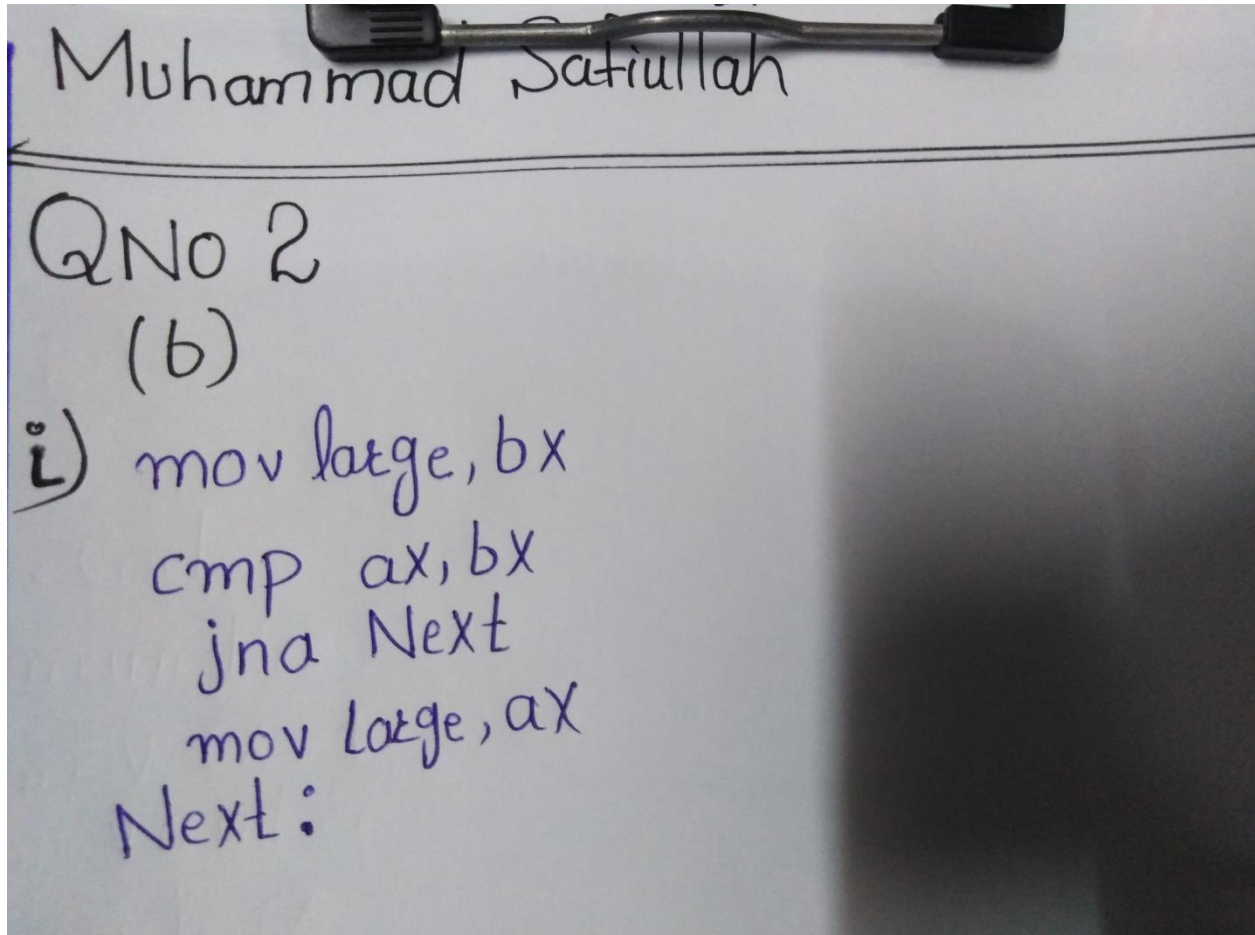 Muhammad Safiullah
QNo 2
(b)
i) mov large, bx
cmp ax, bx
jna Next
mov Large, ax
Next: